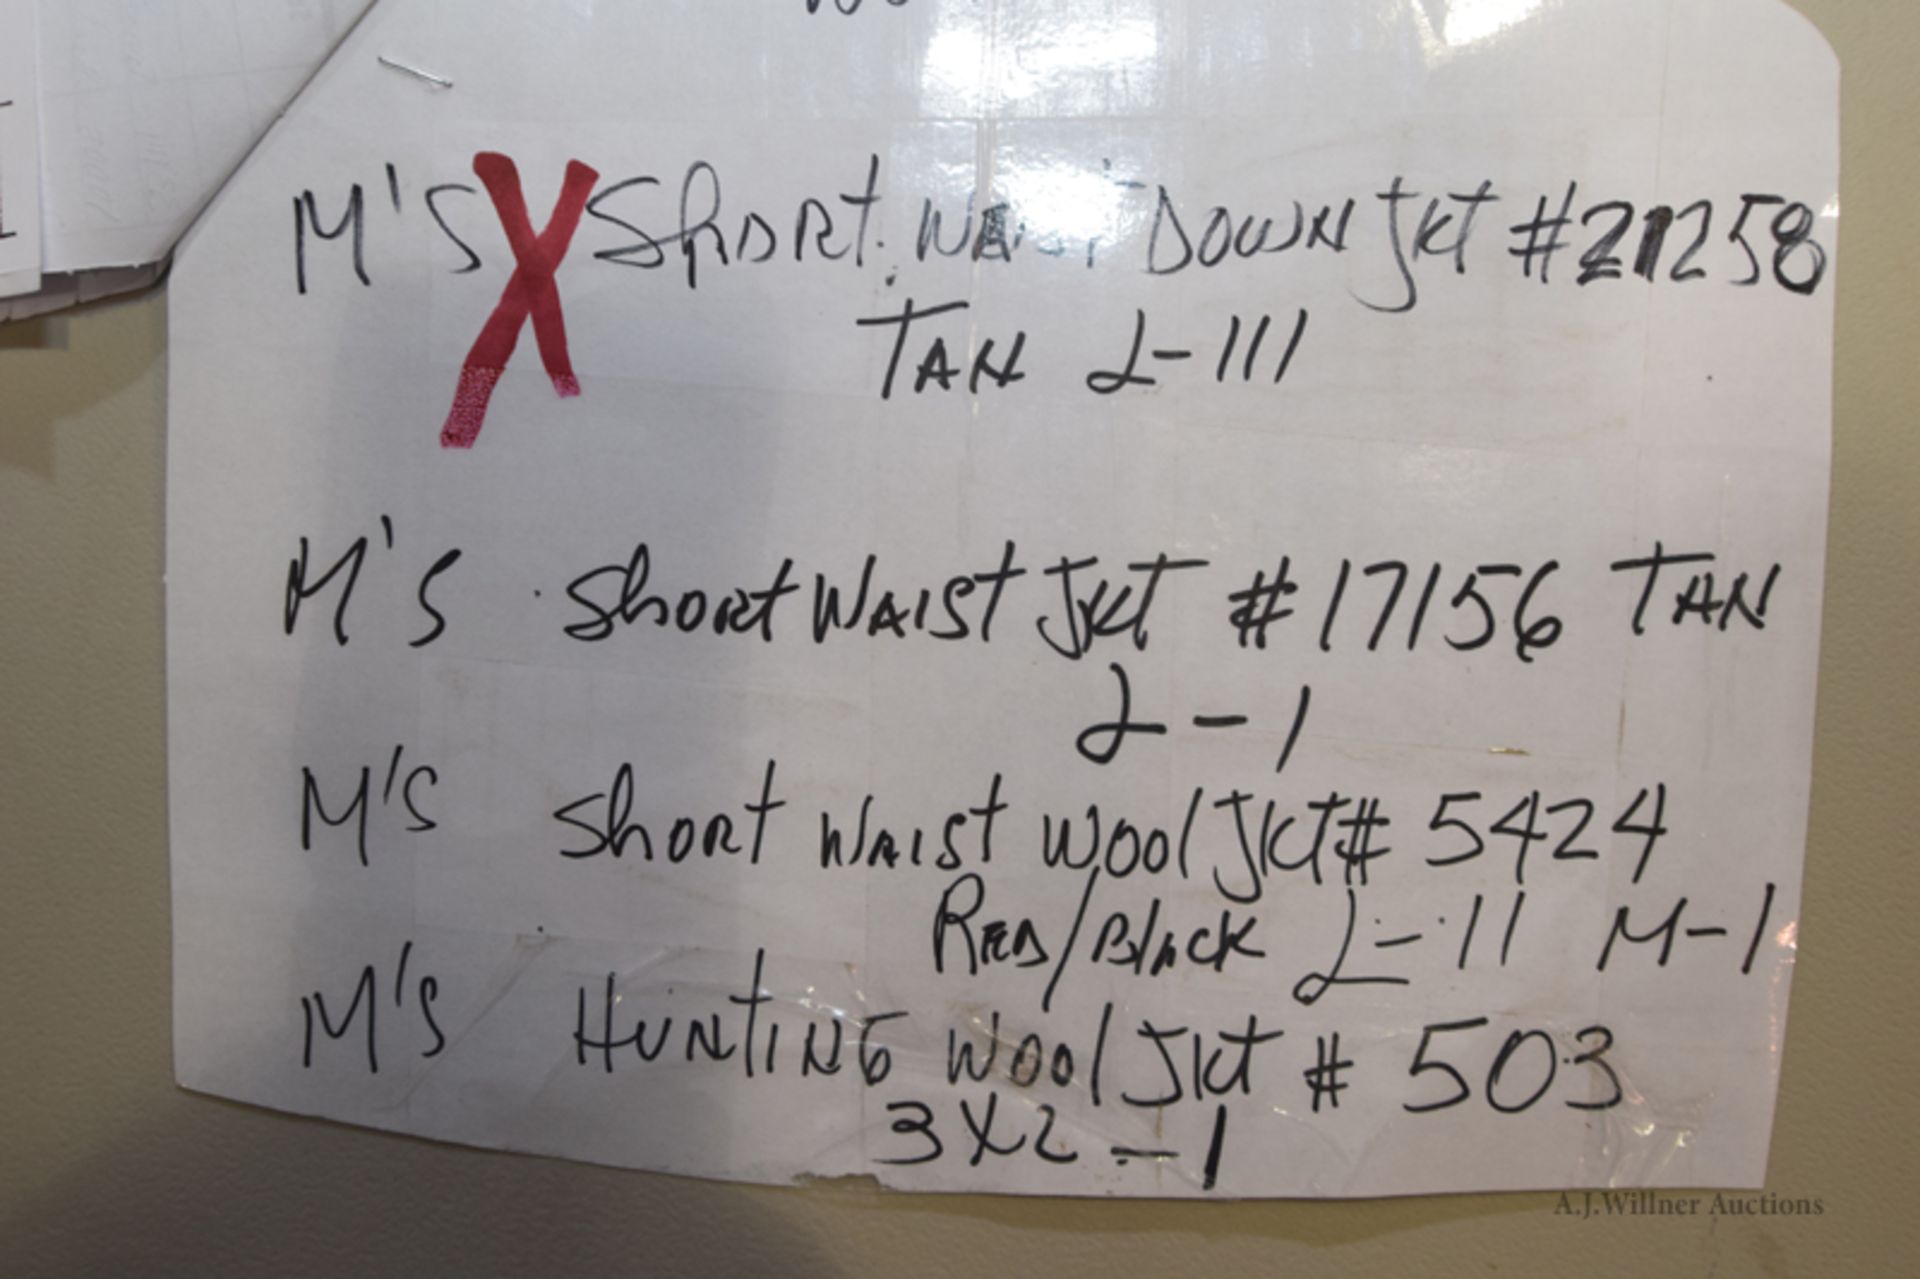 M'S X Short Waist Down Jkt #21258
Tan L-111
M'S Short Waist Jkt #17156 Tan
L-1
M'S Short Waist Wool Jkt # 5424
Red/Black L-11 M-1
M'S Hunting Wool Jkt # 503
3X2 -1
A.J.Willner Auctions